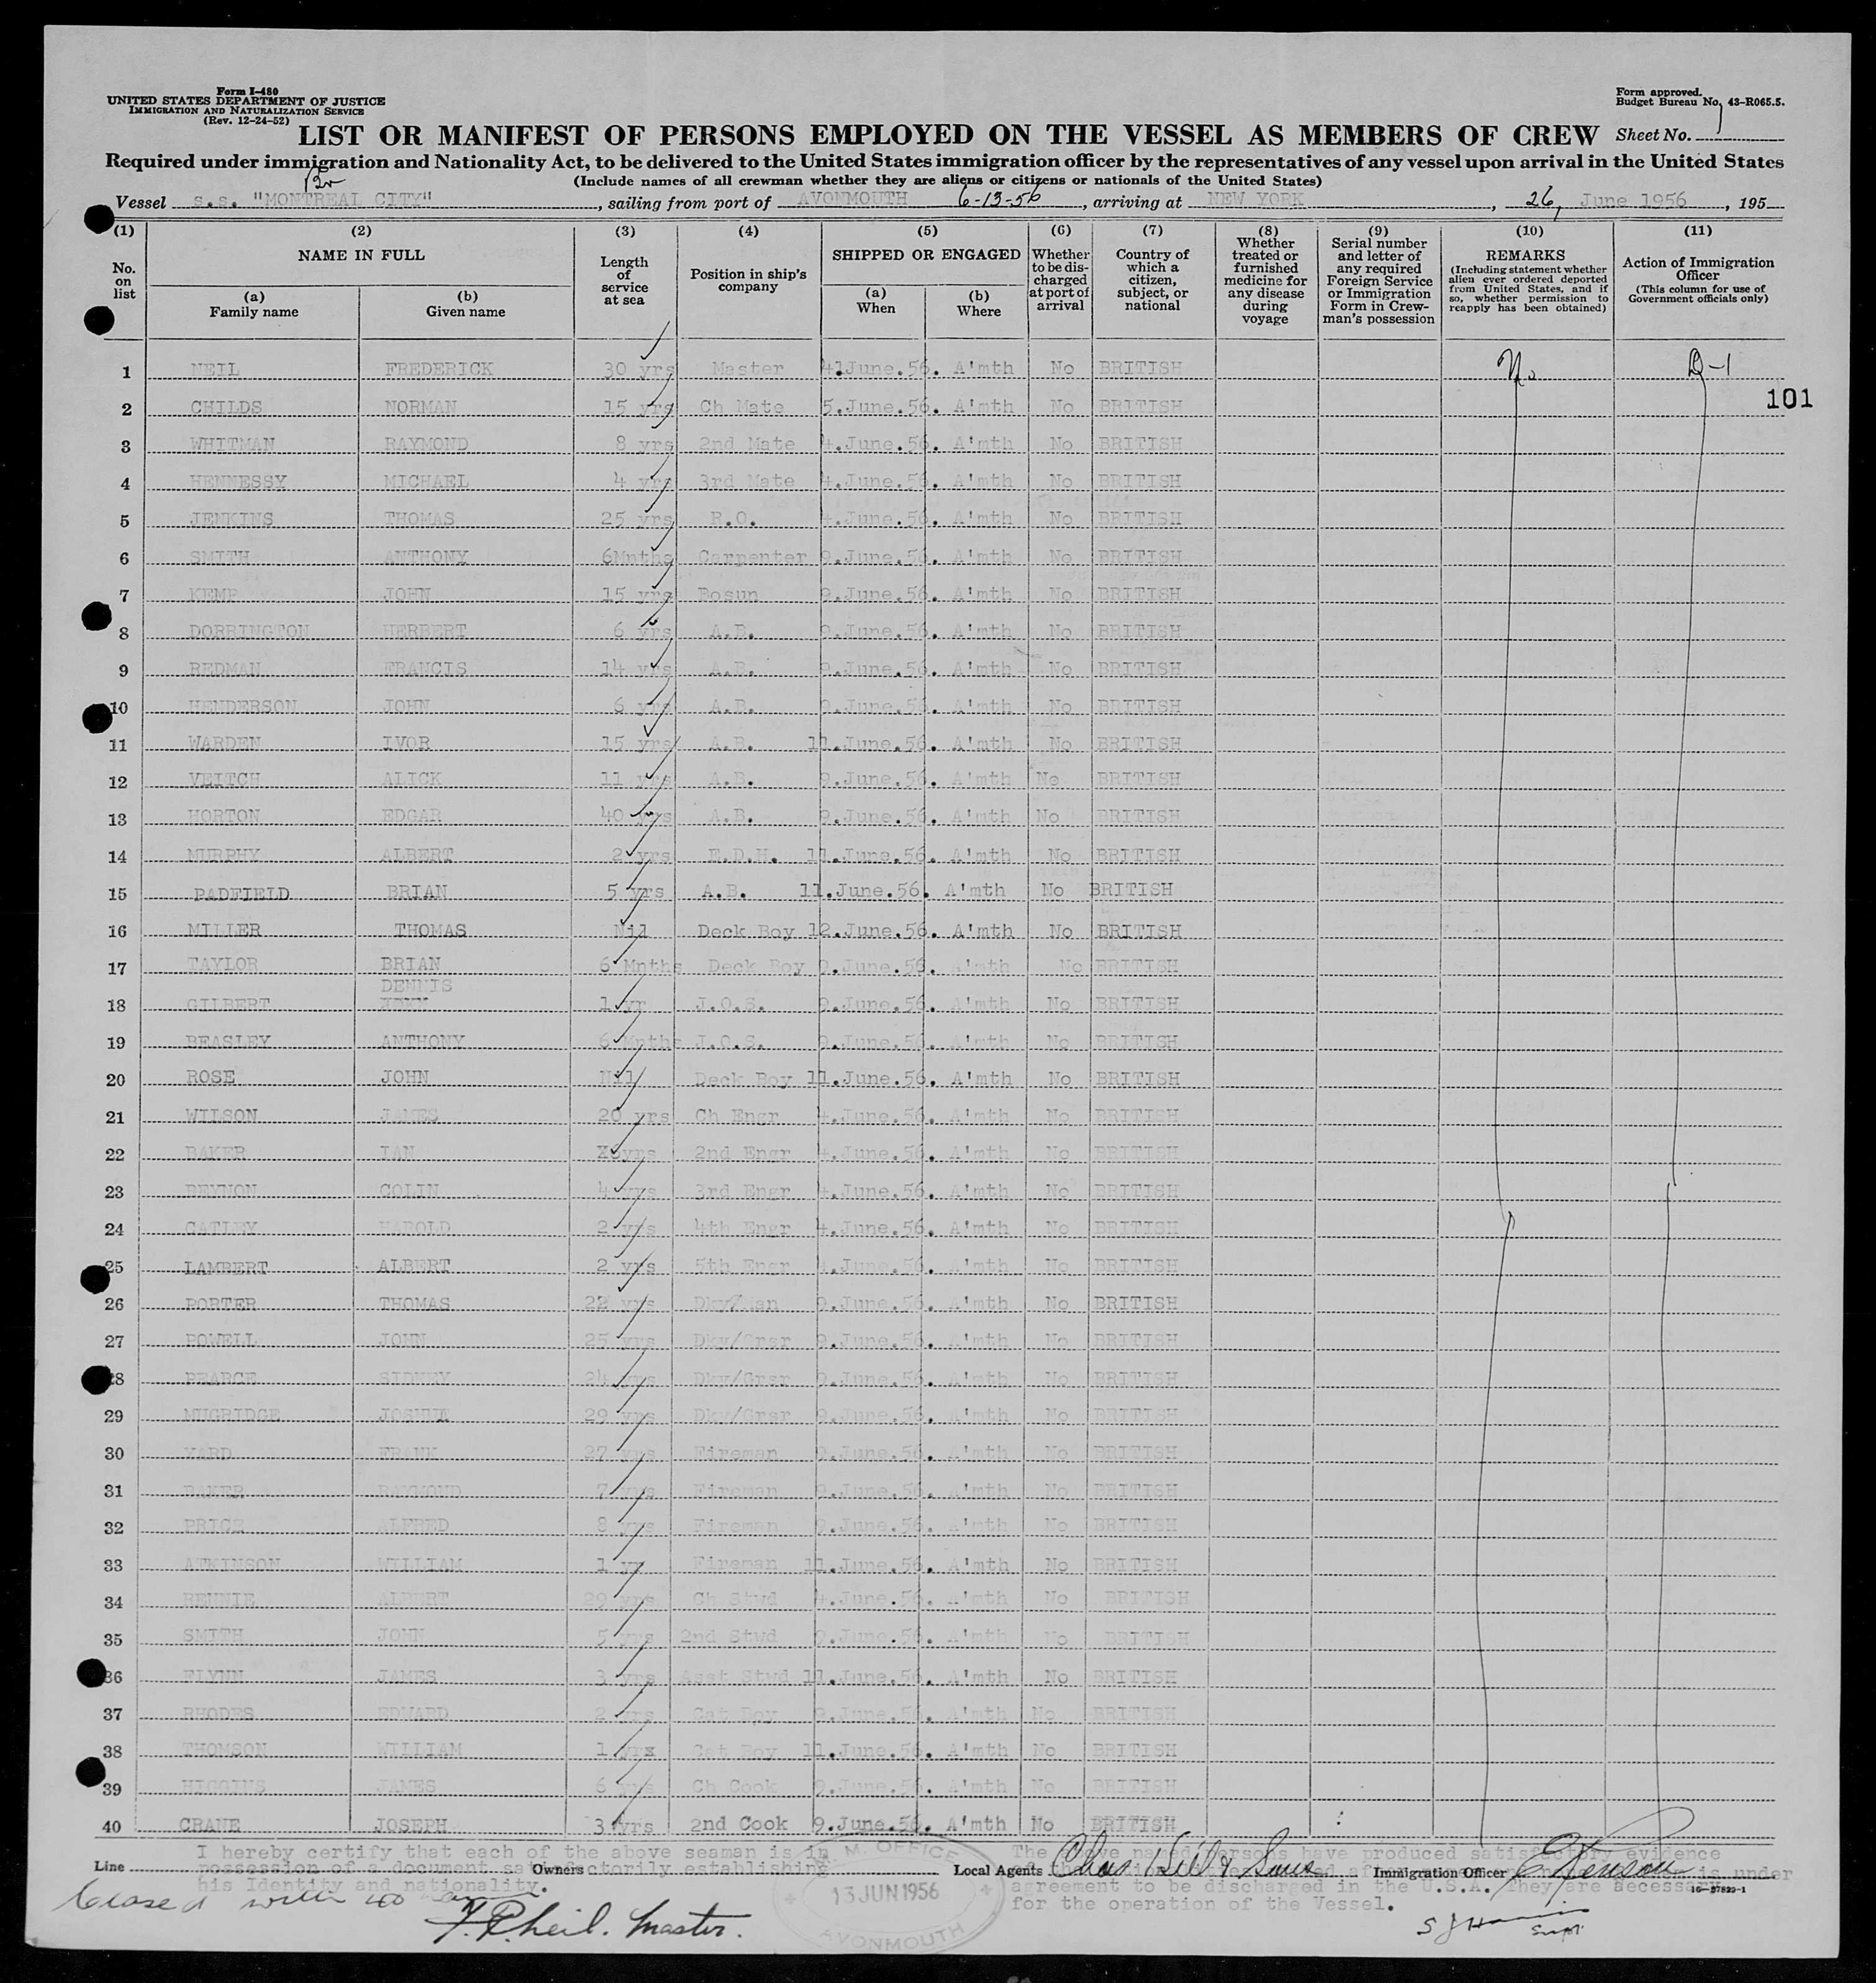 Form I-480
UNITED STATES DEPARTMENT OF JUSTICE
IMMIGRATION AND NATURALIZATION SERVICE
(Rev. 12-24-52)
Form approved.
Budget Bureau No. 43-R065.5.
LIST OR MANIFEST OF PERSONS EMPLOYED ON THE VESSEL AS MEMBERS OF CREW Sheet No. 1
Required under immigration and Nationality Act, to be delivered to the United States immigration officer by the representatives of any vessel upon arrival in the United States
(Include names of all crewman whether they are aliens or citizens or nationals of the United States)
Br
Vessel s.s. "MONTREAL CITY", sailing from port of AVONMOUTH 6-13-56, arriving at NEW YORK, 26, June 1956, 195
(1) (2) (3) (4) (5) (6) (7) (8) (9) (10) (11)
No. on list NAME IN FULL (a) Family name (b) Given name Length of service at sea Position in ship's company SHIPPED OR ENGAGED (a) When (b) Where Whether to be discharged at port of arrival Country of which a citizen, subject, or national Whether treated or furnished medicine for any disease during voyage Serial number and letter of any required Foreign Service or Immigration Form in Crewman's possession REMARKS (Including statement whether alien ever ordered deported from United States, and if so, whether permission to reapply has been obtained) Action of Immigration Officer (This column for use of Government officials only)
1 NEIL FREDERICK 30 yrs Master 4.June.56. A'mth No BRITISH No D-1
101
2 CHILDS NORMAN 15 yrs Ch Mate 5.June.56. A'mth No BRITISH
3 WHITMAN RAYMOND 8 yrs 2nd Mate 4.June.56. A'mth No BRITISH
4 HENNESSY MICHAEL 4 yrs 3rd Mate 4.June.56. A'mth No BRITISH
5 JENKINS THOMAS 25 yrs R.O. 4.June.56. A'mth No BRITISH
6 SMITH ANTHONY 6Mnths Carpenter 9.June.56. A'mth No BRITISH
7 KEMP JOHN 15 yrs Bosun 9.June.56. A'mth No BRITISH
8 DORRINGTON HERBERT 6 yrs A.B. 9.June.56. A'mth No BRITISH
9 REDMAN FRANCIS 14 yrs A.B. 9.June.56. A'mth No BRITISH
10 HENDERSON JOHN 6 yrs A.B. 9.June.56. A'mth No BRITISH
11 WARDEN IVOR 15 yrs A.B. 11.June.56. A'mth No BRITISH
12 VEITCH ALICK 11 yrs A.B. 9.June.56. A'mth No BRITISH
13 HORTON EDGAR 40 yrs A.B. 9.June.56. A'mth No BRITISH
14 MURPHY ALBERT 2 yrs E.D.H. 11.June.56. A'mth No BRITISH
15 PADFIELD BRIAN 5 yrs A.B. 11.June.56. A'mth No BRITISH
16 MILLER THOMAS Nil Deck Boy 12.June.56. A'mth No BRITISH
17 TAYLOR BRIAN 6 Mnths Deck Boy 9.June.56. A'mth No BRITISH
18 GILBERT DENNIS 1 yr J.O.S. 9.June.56. A'mth No BRITISH
19 BEASLEY ANTHONY 6 Mnths J.O.S. 9.June.56. A'mth No BRITISH
20 ROSE JOHN Nil Deck Boy 11.June.56. A'mth No BRITISH
21 WILSON JAMES 20 yrs Ch Engr 4.June.56. A'mth No BRITISH
22 BAKER IAN yrs 2nd Engr 4.June.56. A'mth No BRITISH
23 BEYNON COLIN 4 yrs 3rd Engr 4.June.56. A'mth No BRITISH
24 GATLEY HAROLD 2 yrs 4th Engr 4.June.56. A'mth No BRITISH
25 LAMBERT ALBERT 2 yrs 5th Engr 4.June.56. A'mth No BRITISH
26 PORTER THOMAS 22 yrs 9.June.56. A'mth No BRITISH
27 POWELL JOHN 25 yrs Dky/Grsr 9.June.56. A'mth No BRITISH
28 PEARCE SIDNEY 24 yrs Dky/Grsr 9.June.56. A'mth No BRITISH
29 MUGRIDGE 29 yrs Dky/Grsr 9.June.56. A'mth No BRITISH
30 YARD FRANK 27 yrs Fireman 9.June.56. A'mth No BRITISH
31 BAKER RAYMOND 7 yrs Fireman 9.June.56. A'mth No BRITISH
32 PRICE ALFRED 8 yrs Fireman 9.June.56. A'mth No BRITISH
33 ATKINSON WILLIAM 1 yr Fireman 11.June.56. A'mth No BRITISH
34 RENNIE ALBERT 29 yrs Ch Stwd 4.June.56. A'mth No BRITISH
35 SMITH JOHN 5 yrs 2nd Stwd 9.June.56. A'mth No BRITISH
36 FLYNN JAMES 3 yrs Asst Stwd 11.June.56. A'mth No BRITISH
37 RHODES EDWARD 2 yrs Cat Boy 9.June.56. A'mth No BRITISH
38 THOMSON WILLIAM 1 yrx Cat Boy 11.June.56. A'mth No BRITISH
39 HIGGINS JAMES 6 yrs Ch Cook 9.June.56. A'mth No BRITISH
40 CRANE JOSEPH 3 yrs 2nd Cook 9.June.56. A'mth No BRITISH
I hereby certify that each of the above seaman is in
possession of a document satisfactorily establishing
his Identity and nationality.
Line Owners Local Agents Chas. Hill & Sons Immigration Officer
The above named persons have produced satisfactory evidence
is under
agreement to be discharged in the U.S.A. They are necessary
for the operation of the Vessel.
16-57823-1
M. OFFICE
13 JUN 1956
AVONMOUTH
Closed with 40
F. R. Neil. Master.